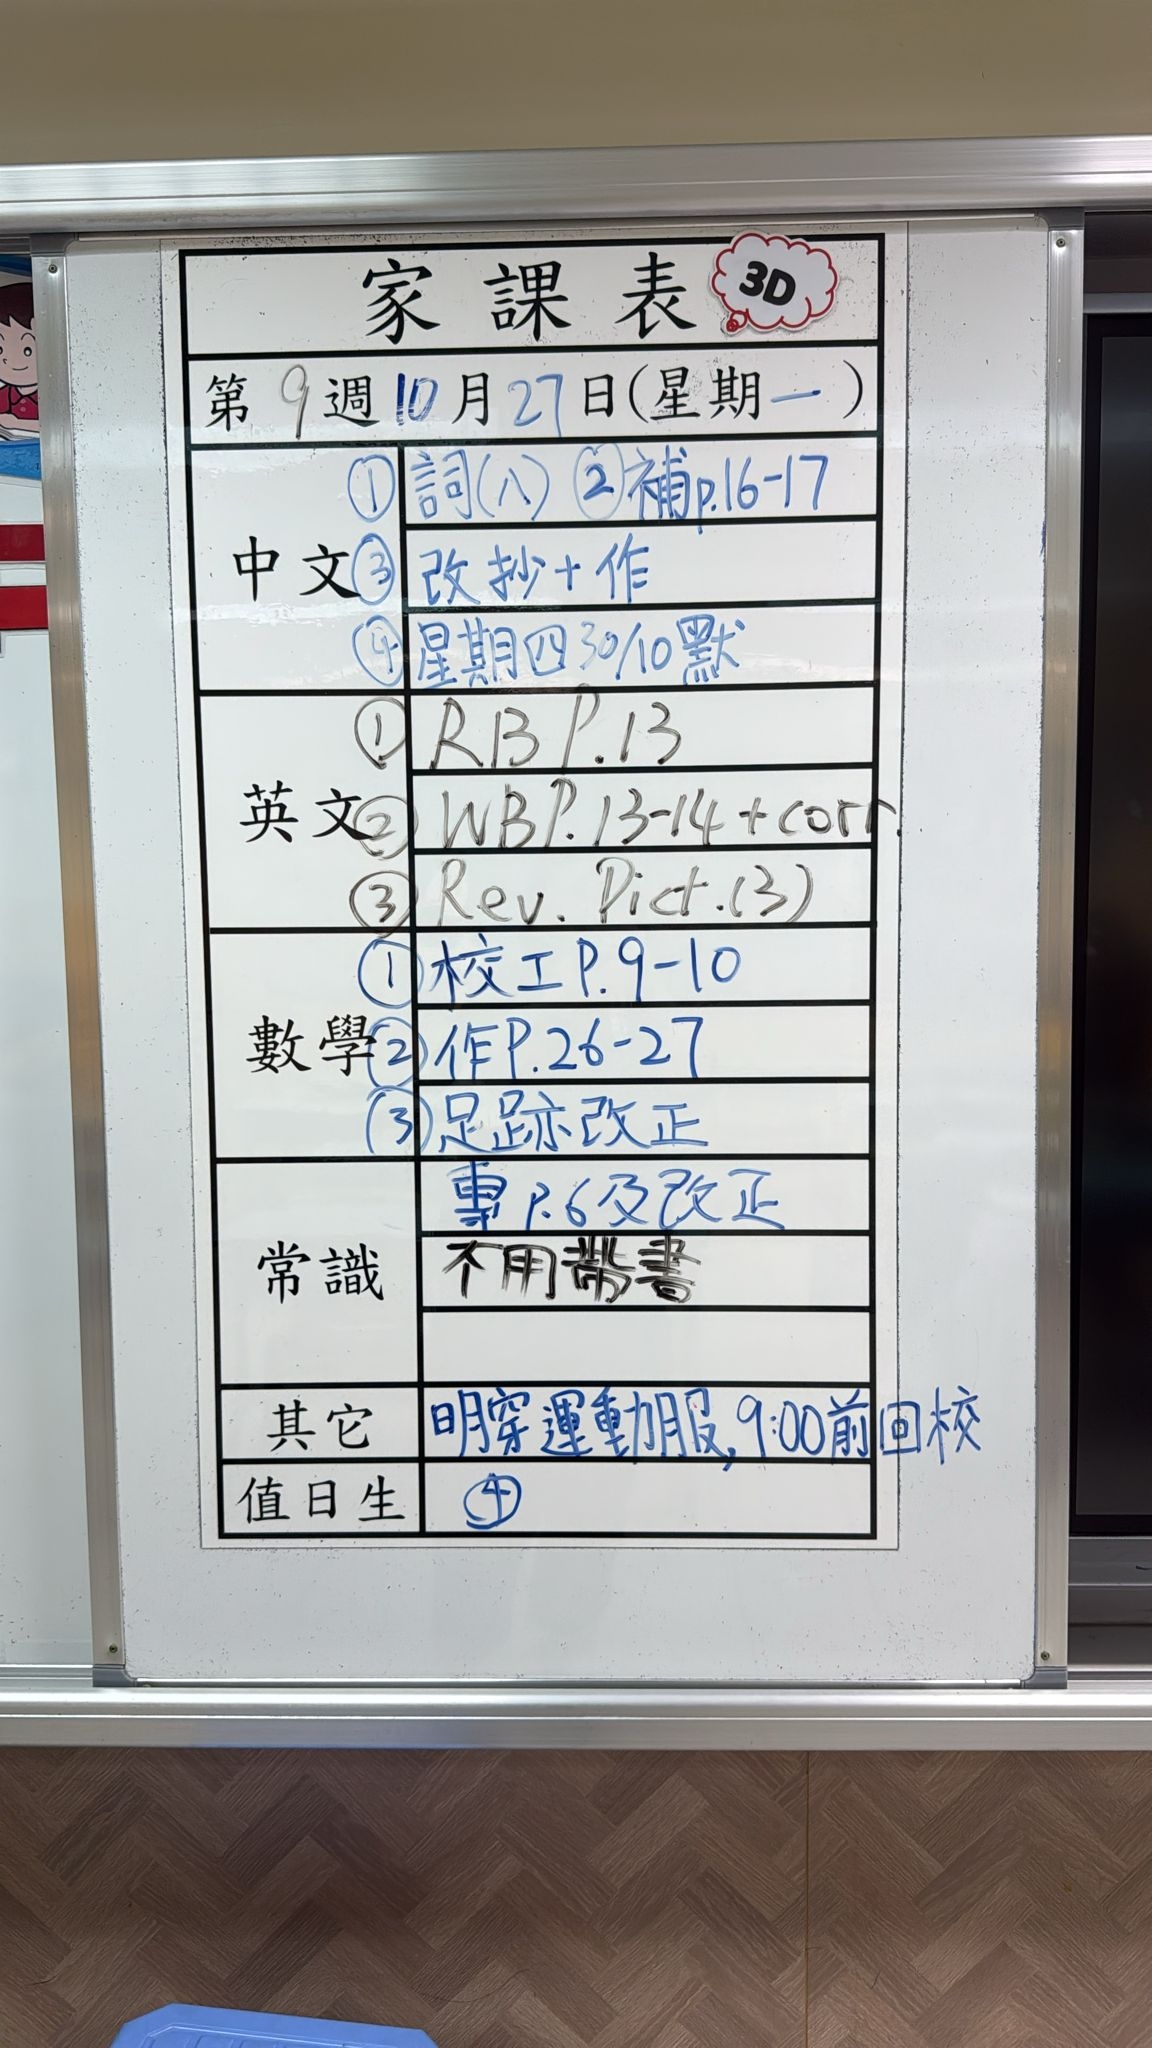 家課表 3D
第9週10月27日(星期一)
中文
① 詞(八) ② 補p.16-17
③ 改抄+作
④ 星期四30/10默
英文
① RB P.13
② WB P.13-14 + corr.
③ Rev. Pict.(3)
數學
① 校工P.9-10
② 作P.26-27
③ 足跡改正
常識
專P.6及改正
不用帶書
其它
明穿運動服,9:00前回校
值日生
④